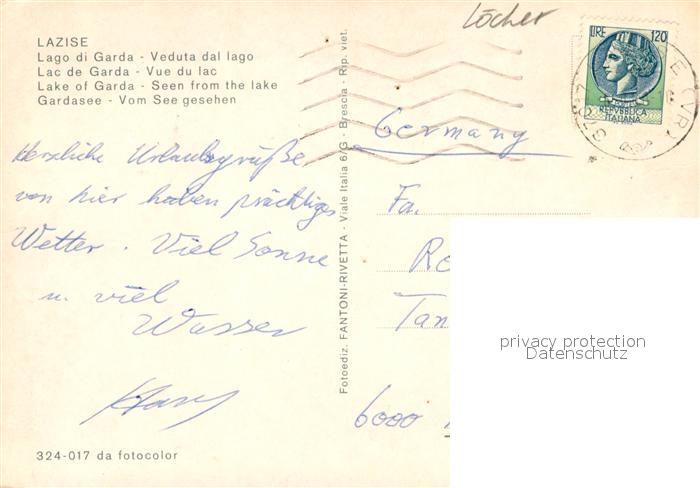 Löcher
LAZISE
Lago di Garda - Veduta dal lago
Lac de Garda - Vue du lac
Lake of Garda - Seen from the lake
Gardasee - Vom See gesehen
LIRE 120
REPVBBLICA
ITALIANA
Herzliche Urlaubsgrüße
von hier haben prächtiges
Wetter. Viel Sonne
u. viel
Wasser
324-017 da fotocolor
Fotoediz. FANTONI-RIVETTA - Viale Italia 6/G - Brescia - Rip. viet.
Germany
Fa.
6000
privacy protection
Datenschutz